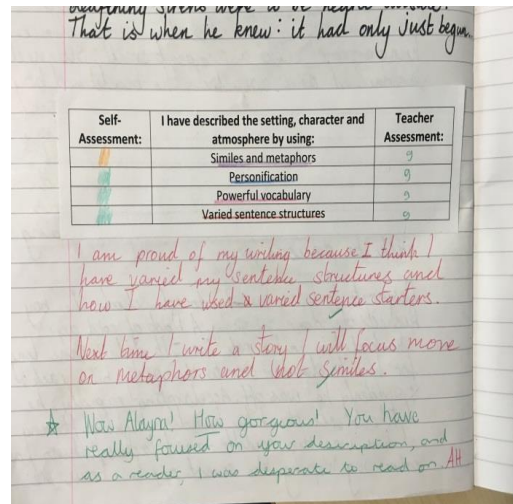 That is when he knew: it had only just begun.
Self-Assessment:
I have described the setting, character and atmosphere by using:
Teacher Assessment:
Similes and metaphors g
Personification g
Powerful vocabulary g
Varied sentence structures g
I am proud of my writing because I think I
have varied my sentence structures and
how I have used a varied sentence starters.
Next time I write a story I will focus more
on metaphors and not similes.
Wow Alayna! How gorgeous! You have
really focused on your description, and
as a reader, I was desperate to read on. AH